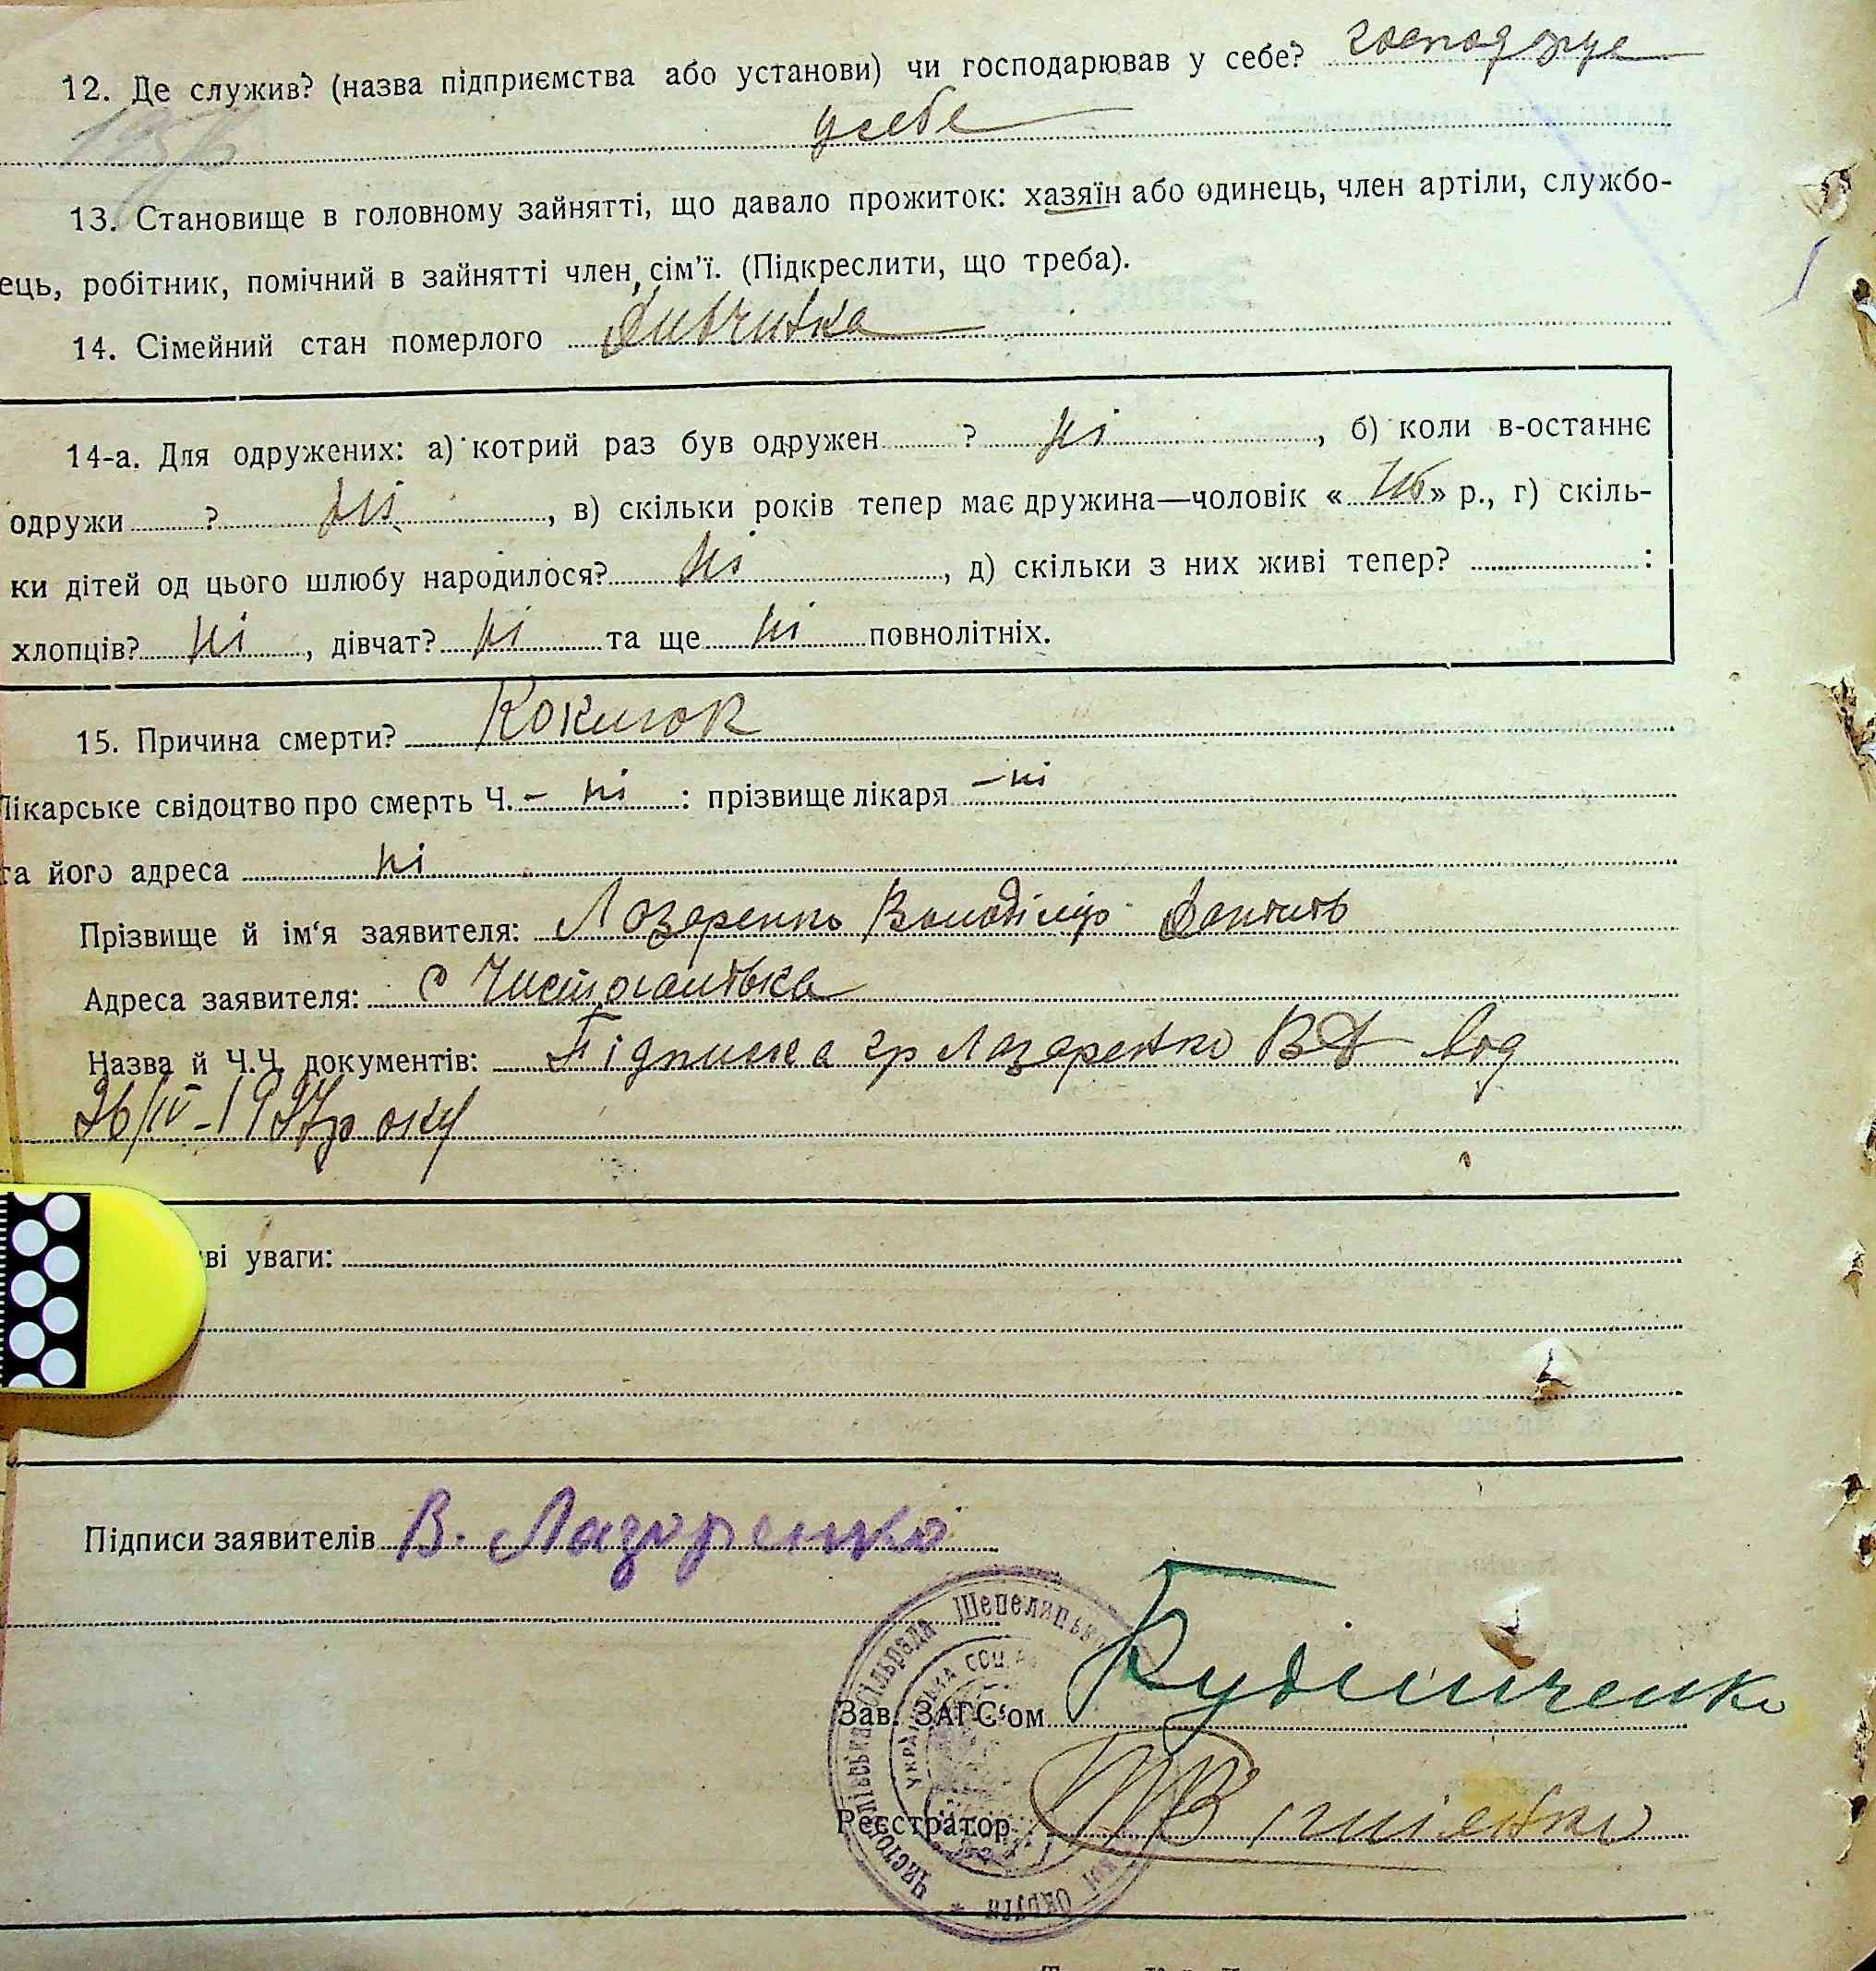 12. Де служив? (назва підприємства або установи) чи господарював у себе? господарує
усебе
13. Становище в головному зайнятті, що давало прожиток: хазяїн або одинець, член артіли, службо-
ець, робітник, помічний в зайнятті член сім’ї. (Підкреслити, що треба).
14. Сімейний стан померлого дивчинка
14-а. Для одружених: а) котрий раз був одружен ? ні, б) коли в-останнє
одружи ? ні, в) скільки років тепер має дружина—чоловік « ні » р., г) скіль-
ки дітей од цього шлюбу народилося? ні, д) скільки з них живі тепер? :
хлопців? ні, дівчат? ні та ще ні повнолітніх.
15. Причина смерти? Коклюк
Лікарське свідоцтво про смерть Ч. – ні : прізвище лікаря – ні
та його адреса ні
Прізвище й ім‘я заявителя: Лозаренко Володімір
Адреса заявителя: с Чистогалівка
Назва й Ч.Ч. документів: Підписка гр Лазаренко ВД вод
26/IV-1927 року
ві уваги:
Підписи заявителів В. Лазоренко
Чистогалівська сільрада Шепелицьк
кої Округи *
УКРАЇНСЬКА СОЦ
Зав. ЗАГС‘ом
Реєстратор